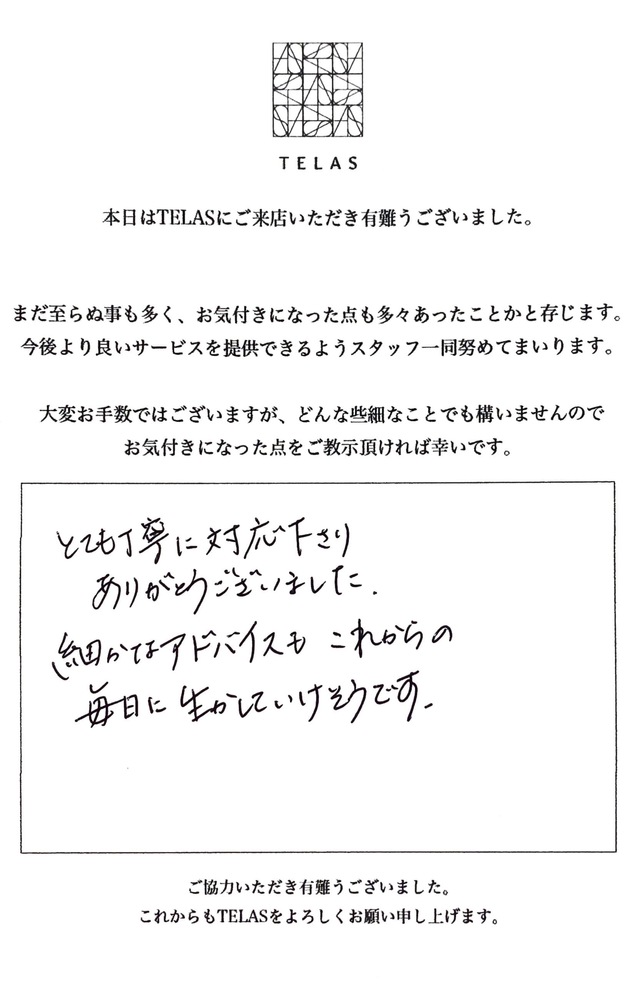 TELAS
本日はTELASにご来店いただき有難うございました。
まだ至らぬ事も多く、お気付きになった点も多々あったことかと存じます。
今後より良いサービスを提供できるようスタッフ一同努めてまいります。
大変お手数ではございますが、どんな些細なことでも構いませんので
お気付きになった点をご教示頂ければ幸いです。
とても丁寧に対応下さり
ありがとうございました.
細かなアドバイスも これからの
毎日に 生かしていけそうです.
ご協力いただき有難うございました。
これからもTELASをよろしくお願い申し上げます。